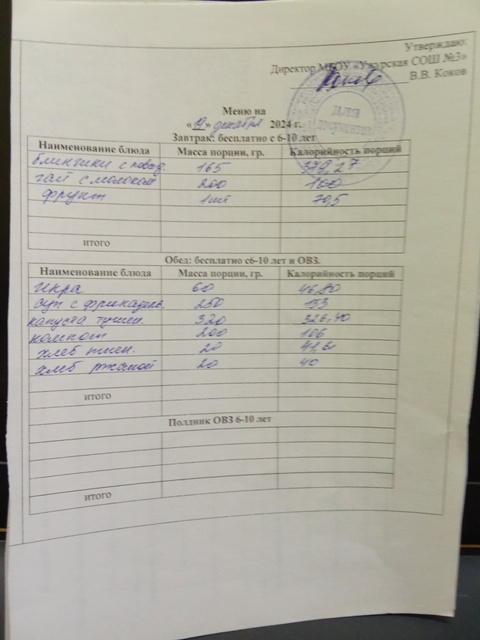 Утверждаю:
Директор МБОУ «Ужурская СОШ №3»
В.В. Коков
для документов
Меню на
«19» декабря 2024 г.
Завтрак: бесплатно с 6-10 лет
Наименование блюда Масса порции, гр. Калорийность порций
блинчики с повид. 165 379,27
чай с молоком 200 100
фрукт 1шт 70,5
итого
Обед: бесплатно с6-10 лет и ОВЗ.
Наименование блюда Масса порции, гр. Калорийность порций
икра 60 46,80
суп с фрикадель. 250 153
капуста тушен. 320 326,40
компот 200 106
хлеб пшен. 20
хлеб ржаной 20 40
итого
Полдник ОВЗ 6-10 лет
итого